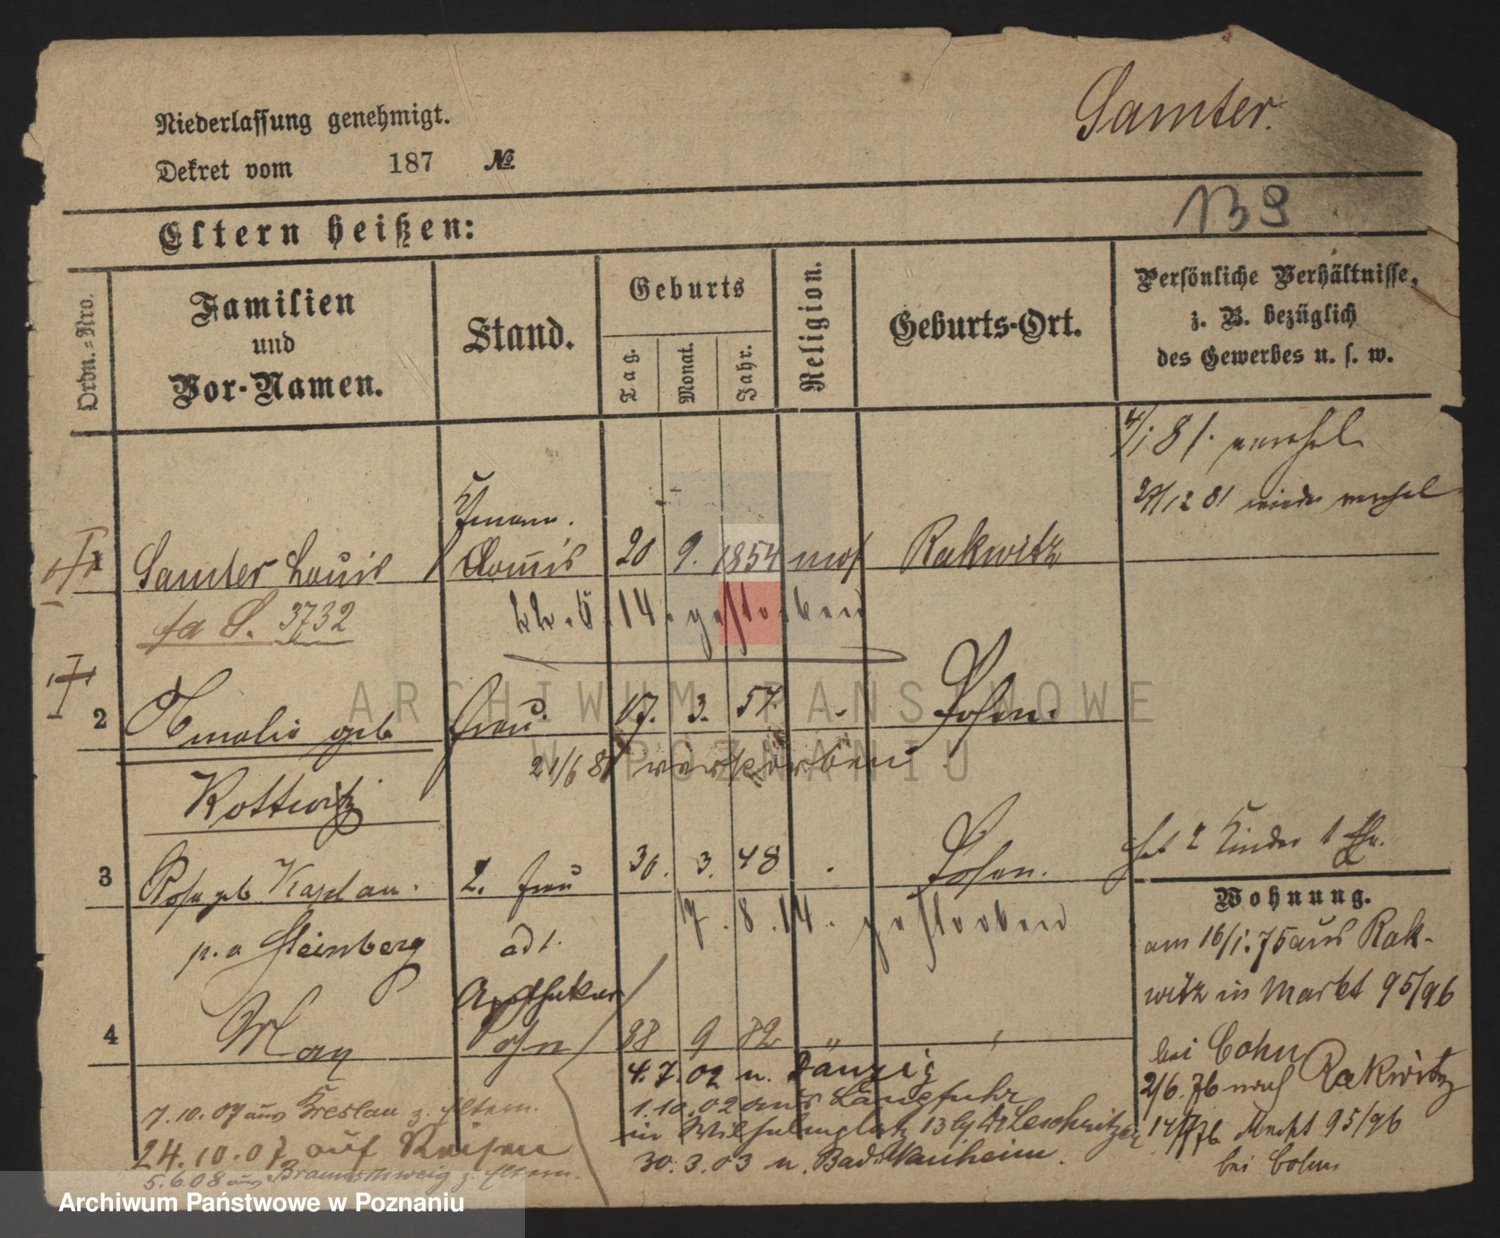 Samter.
Niederlassung genehmigt.
Dekret vom 187 №
139
Eltern heißen:
Ordn.=Nro.
Familien
und
Vor-Namen.
Stand.
Geburts
Tag.
Monat.
Jahr.
Religion.
Geburts-Ort.
Persönliche Verhältnisse,
z. B. bezüglich
des Gewerbes u. s. w.
4/1 81.
29/12 81 wieder
1 Samter Louis Commis 20 9. 1854 mos Rakwitz
fa S. 3732
22.5.14. gestorben
2 Amalie geb Frau 17. 3. 57. Posen.
21/6 81 verstorben
Kottwitz
hat 2 Kinder 1
3 Rosa geb. Kaplan. 2. Frau 30. 3. 48 Posen.
Wohnung.
7.8.14. gestorben
p. a Steinberg adt.
am 16/1.75 aus Rak-
witz in Markt 95/96
Apotheker
4 Max Sohn 28 9 82 "
bei Cohn
4.7.02 n. Danzig
2/6.76 nach Rakwitz
7.10.07 aus Breslau z. Eltern.
1.10.02 aus Langfuhr
in Wilhelmplatz 13 Leschnitzer
Markt 95/96
24.10.07 auf Reisen
30.3.03 n. Bad Nauheim.
bei Cohn
5.6.08 aus Braunschweig z. Eltern.
ARCHIWUM PAŃSTWOWE
W POZNANIU
Archiwum Państwowe w Poznaniu